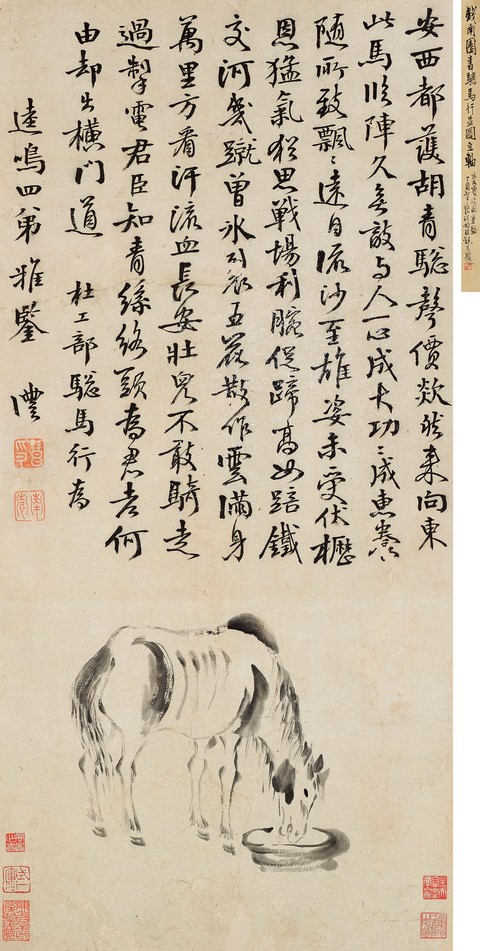 安西都護胡青驄聲價欻然来向東
此馬臨陣久無敵与人一心成大功〻成惠養
随所致飄〻遠自流沙至雄姿未受伏櫪
恩猛氣猶思戰場利腕促蹄高如踣鐵
交河幾蹴曾冰裂五花散作雲滿身
萬里方看汗流血長安壯兒不敢騎走
過掣電君臣知青絲絡頭為君老何
由却出橫門道 杜工部驄馬行為
逵鳴四弟雅鑒 灃
南園
錢南園書驄馬行並圖立軸